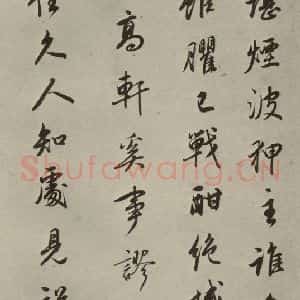 煙波狎主誰
臞已戰酣絶
高軒奚事謬
久人知處見
Shufawang.CN